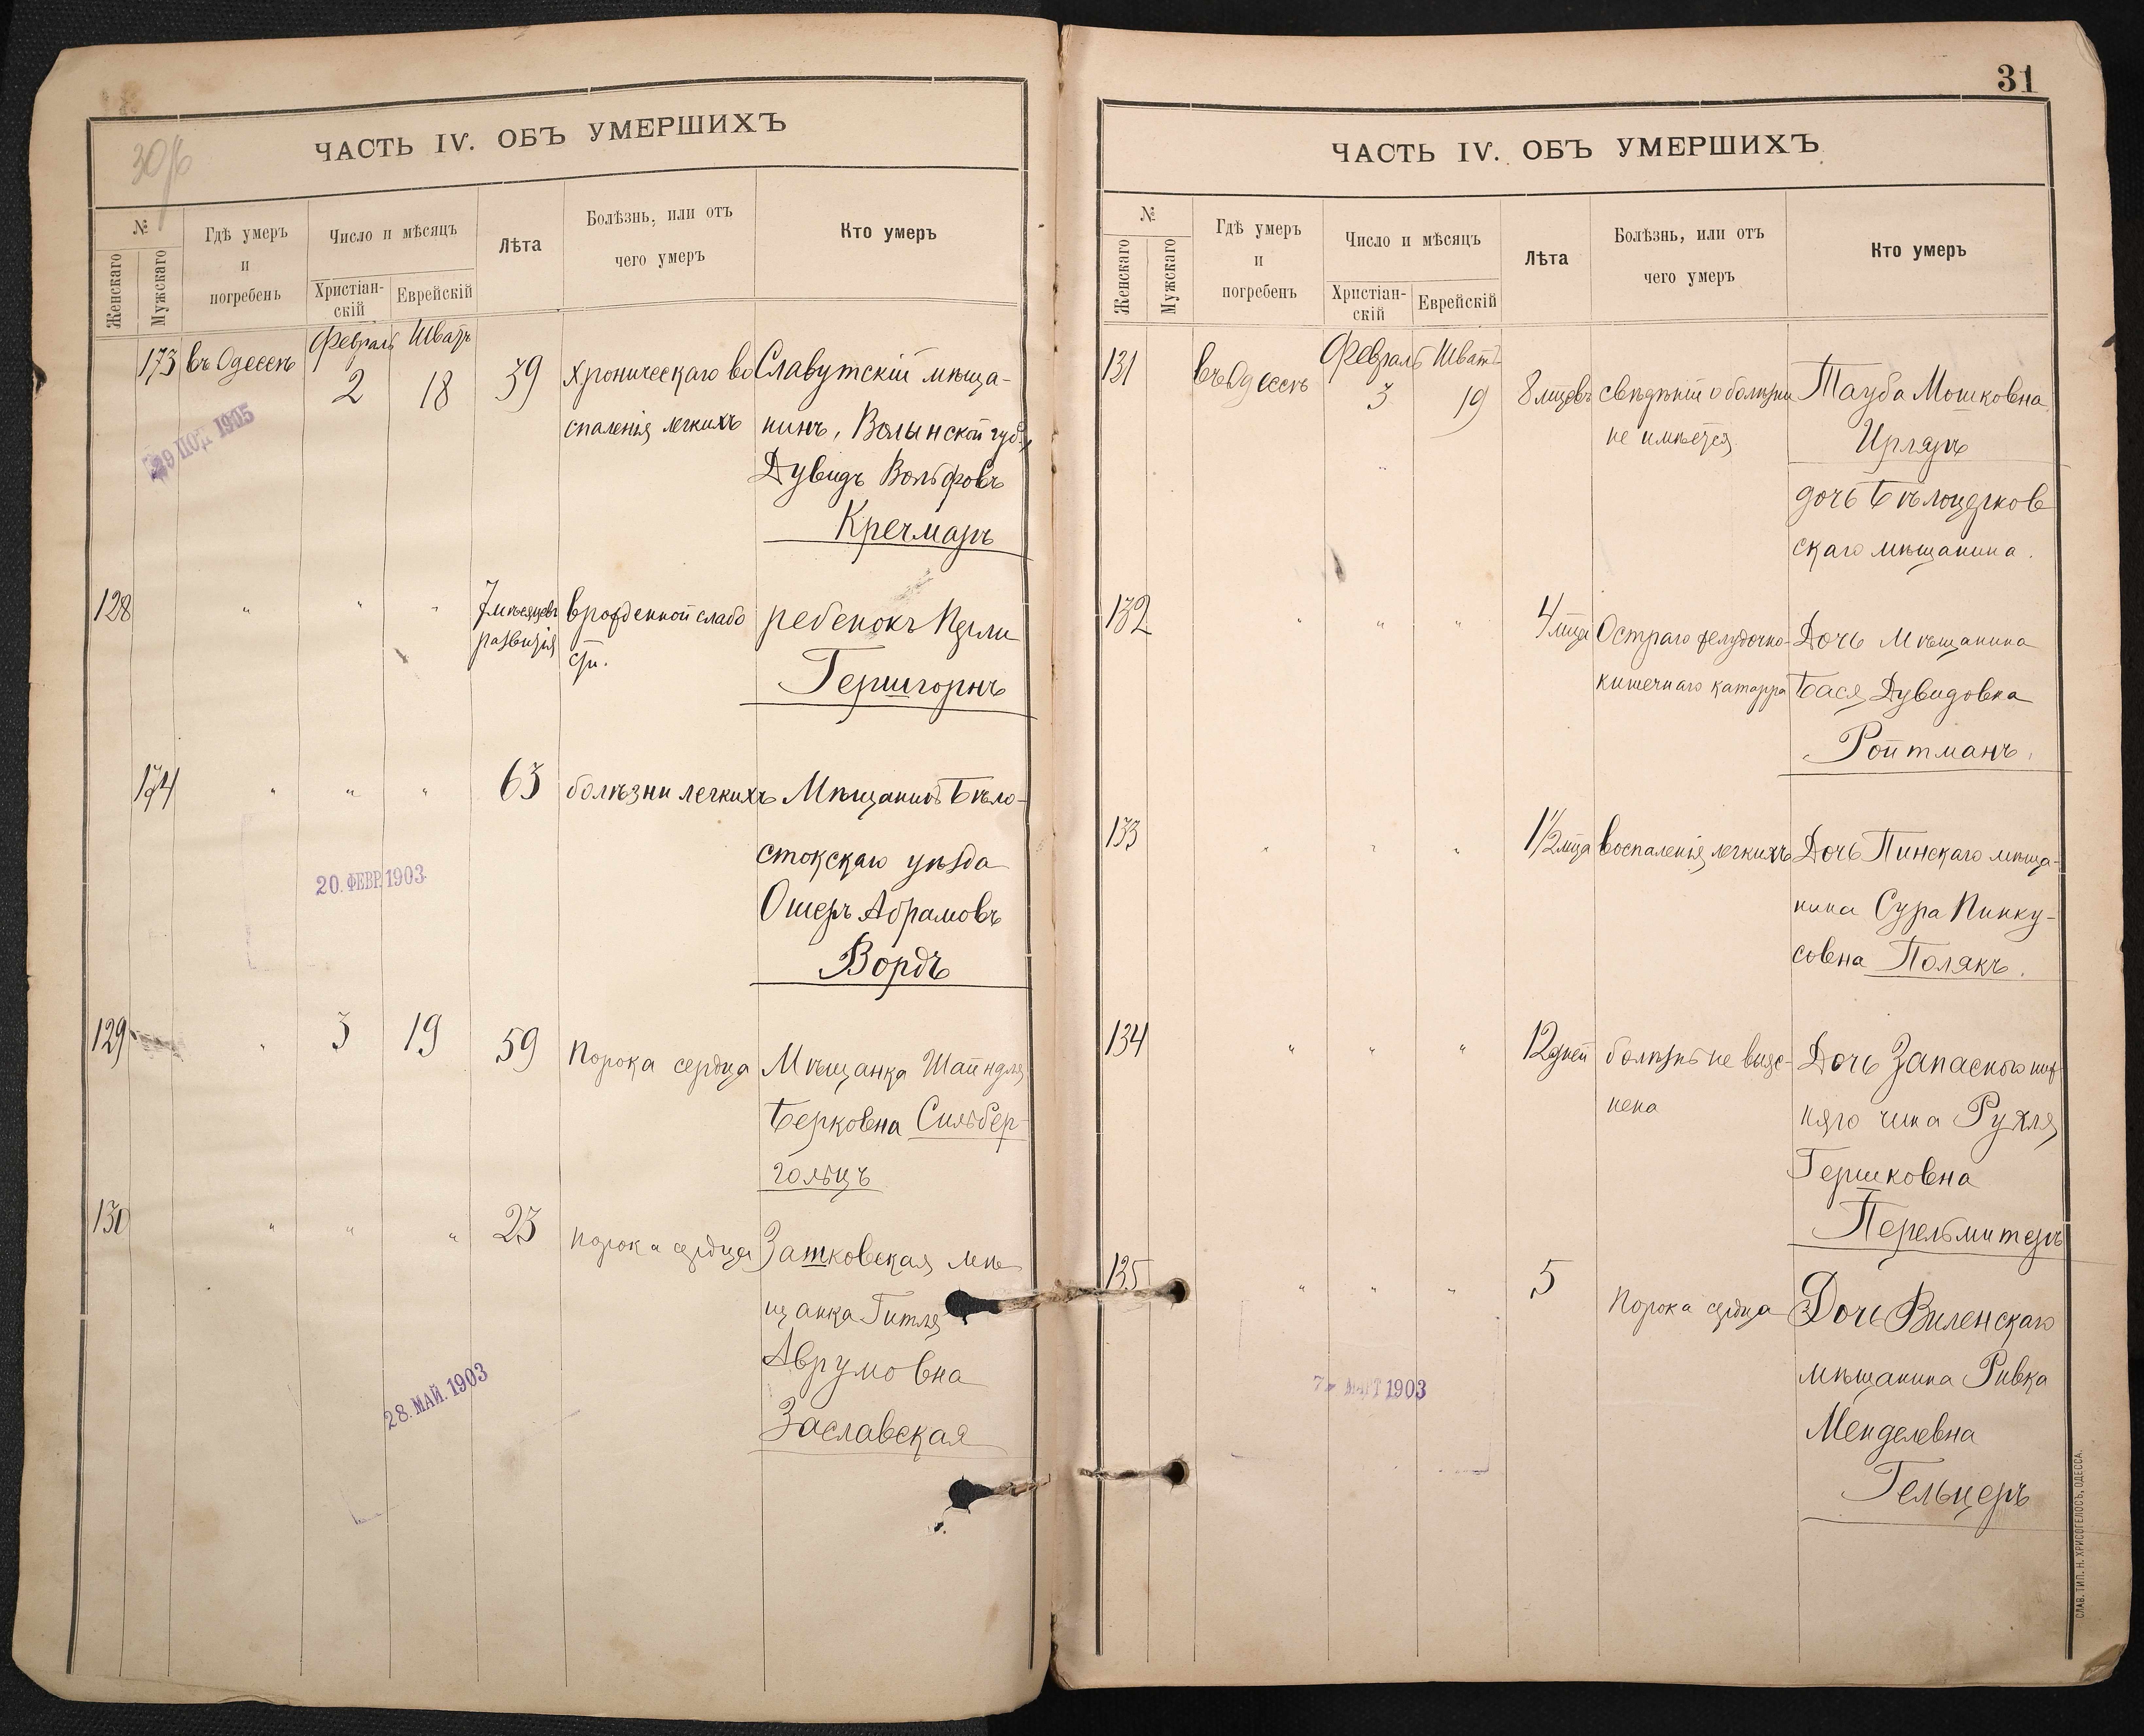 ЧАСТЬ IV. ОБЪ УМЕРШИХЪ
№
Женскаго
Мужскаго
Гдѣ умеръ
и
погребенъ
Число и мѣсяцъ
Христіан-
скій
Еврейскій
Лѣта
Болѣзнь, или отъ
чего умеръ
Кто умеръ
173 въ Одессѣ Февраль Шватъ
2 18 39 хроническаго во Славутскій мѣща-
спаленія легкихъ нинъ, Волынской губ.,
Дувидъ Вольфовъ
Кречмаръ
29 1905
128 " " " 7 мѣсяцевъ врожденной слабо ребенокъ Перли
развитія сти.
Гершгорнъ
174 " " " 63 болѣзни легкихъ Мѣщанинъ Бѣло-
стокскаго уѣзда
20. ФЕВР. 1903
Ошеръ Абрамовъ
Вордъ
129 " 3 19 59 порока сердца Мѣщанка Шайндля
Берковна Сильбер-
гольцъ
130 " " " 23 порока сердца Затковская мѣ
щанка Гитля
Аврумовна
Заславская
28. МАЙ. 1903
31
ЧАСТЬ IV. ОБЪ УМЕРШИХЪ
№
Женскаго
Мужскаго
Гдѣ умеръ
и
погребенъ
Число и мѣсяцъ
Христіан-
скій
Еврейскій
Лѣта
Болѣзнь, или отъ
чего умеръ
Кто умеръ
131 въ Одессѣ Февраль Шватъ
3 19 8 мцевъ свѣдѣній о болѣзни Тауба Мошковна
не имѣется
Ирляръ
дочь Бѣлоцерков
скаго мѣщанина.
132 " " " 4 мца Остраго желудочно- Дочь Мѣщанина
кишечнаго катарра Бася Дувидовна
Ройтманъ.
133 " " " 1 1/2 мца воспаленія легкихъ Дочь Пинскаго мѣща-
нина Сура Пинку-
совна Полякъ.
134 " " " 12 дней болѣзнь не выяс- Дочь Запаснаго ниж
нена няго чина Рухля
Гершковна
Перельмитеръ
135 " " " 5 порока сердца Дочь Виленскаго
мѣщанина Ривка
7. МАРТ 1903
Менделевна
Гельцеръ
СЛАВ. ТИП. Н. ХРИСОГЕЛОСЪ, ОДЕССА.